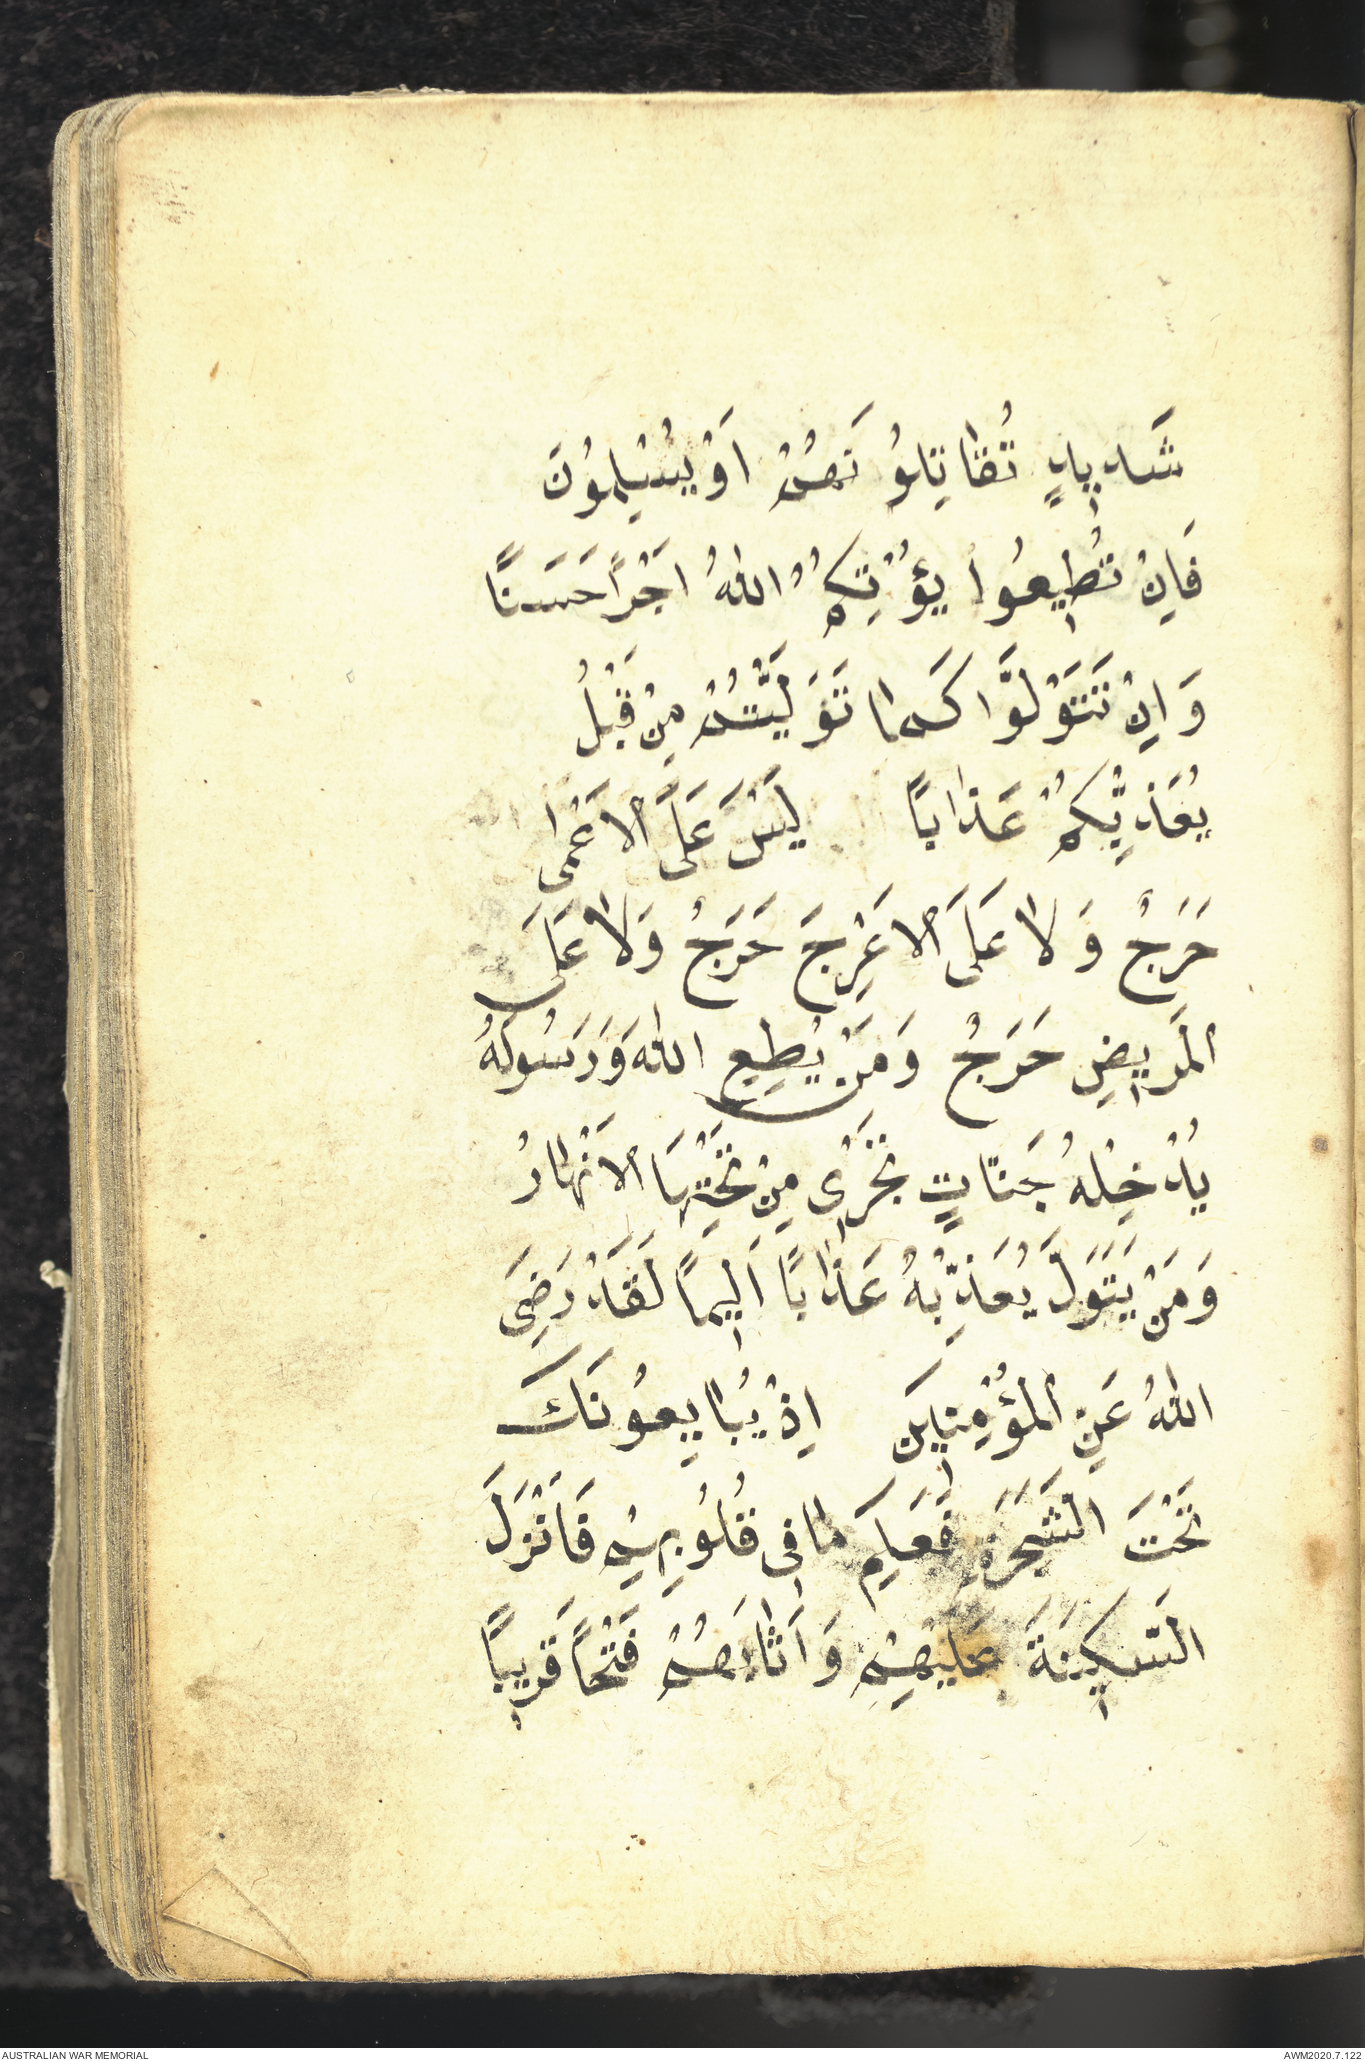 شَدِيدٍ تُقَاتِلُونَهُمْ اَوْ يُسْلِمُونَ
فَاِنْ تُطِيعُوا يُؤْتِكُمُ اللهُ اَجْرًا حَسَنًا
وَاِنْ تَتَوَلَّوْا كَمَا تَوَلَّيْتُمْ مِنْ قَبْلُ
يُعَذِّبْكُمْ عَذَابًا لَيْسَ عَلَى الاَعْمٰى
حَرَجٌ وَلَا عَلَى الاَعْرِجَ حَرَجٌ وَلَا عَلَى
المَرِيضِ حَرَجٌ وَمَنْ يُطِعِ اللهَ وَرَسُولَهُ
يُدْخِلْهُ جَنَّاتٍ تَجْرِى مِنْ تَحْتِهَا الاَنْهَارُ
وَمَنْ يَتَوَلَّ يُعَذِّبْهُ عَذَابًا اَلِيمًا لَقَدْ رَضِىَ
اللهُ عَنِ المُؤْمِنِينَ اِذْ يُبَايِعُونَكَ
تَحْتَ الشَّجَرَةِ فَعَلِمَ مَا فِى قُلُوبِهِمْ فَاَنْزَلَ
السَّكِينَةَ عَلَيْهِمْ وَاَثَابَهُمْ فَتْحًا قَرِيبًا
AUSTRALIAN WAR MEMORIAL
AWM2020.7.122